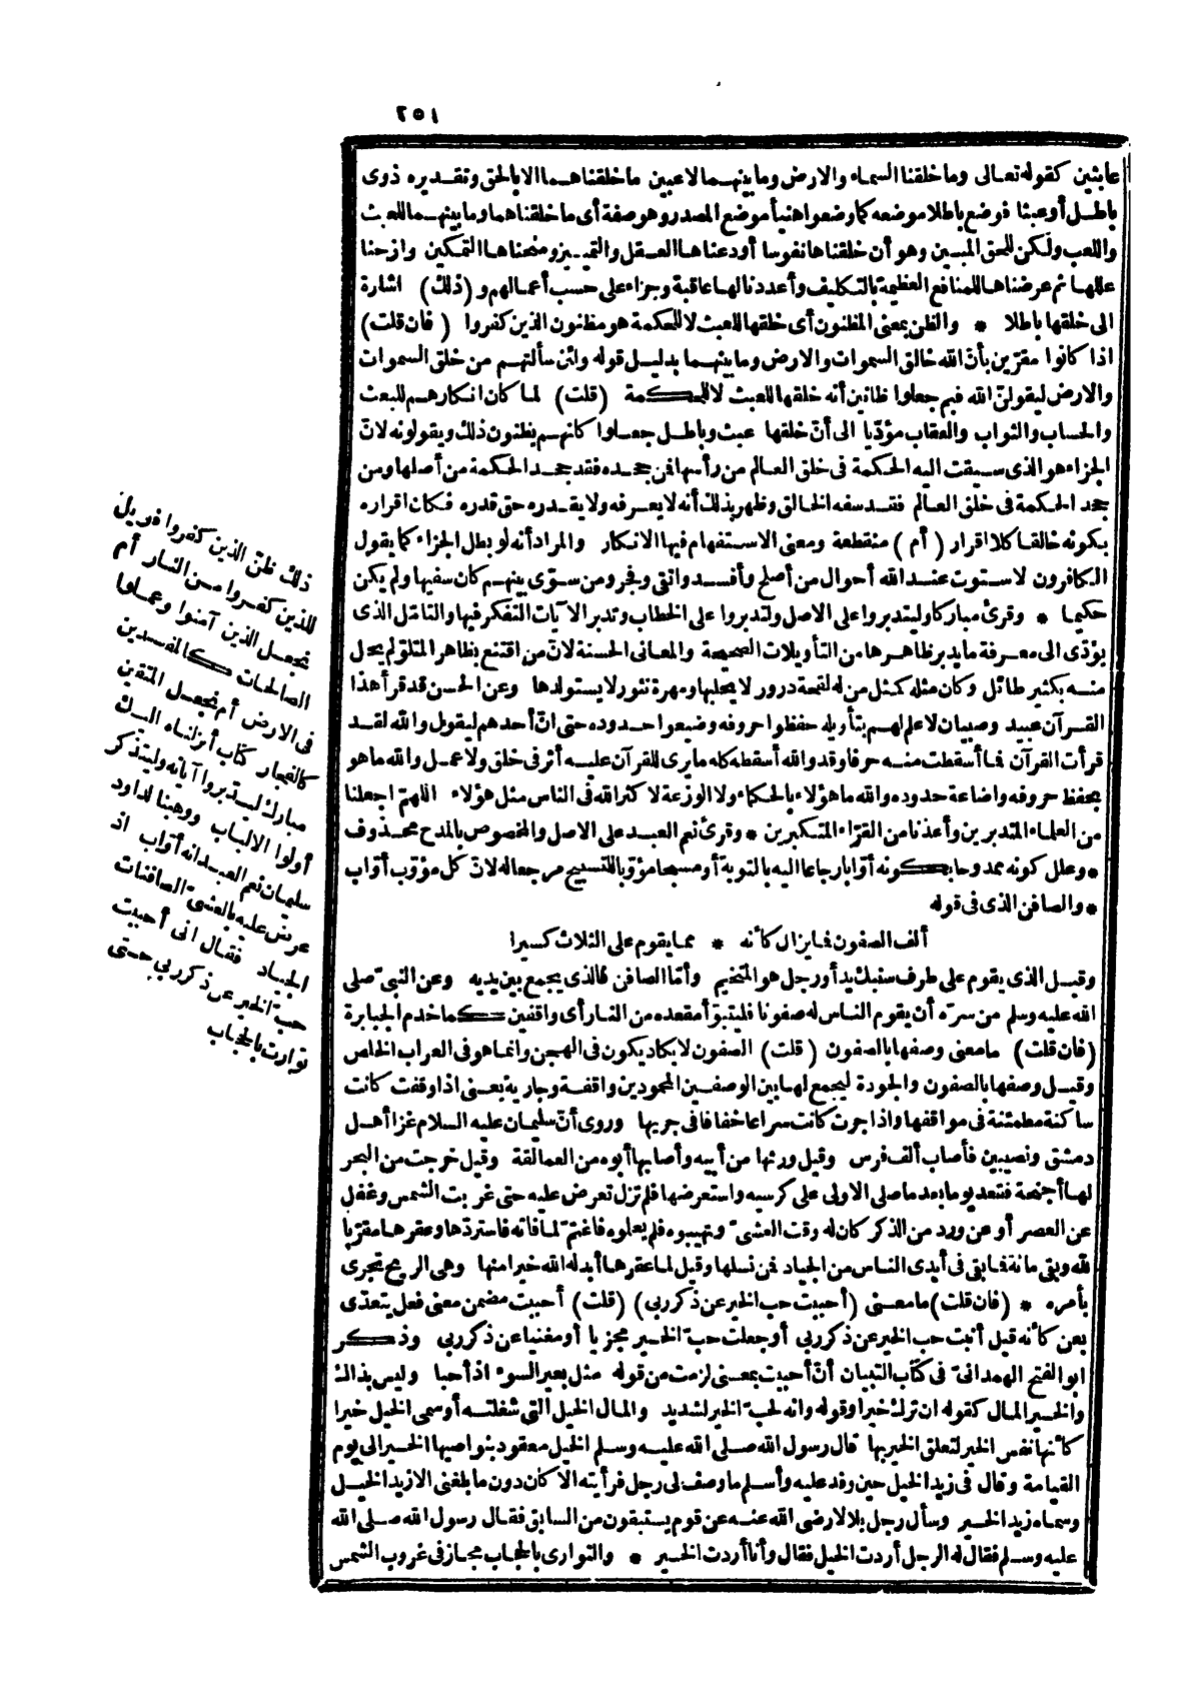 ٢٥١
عابثين كقوله تعالى وما خلقنا السماء والارض وما بينهما لاعبين ما خلقناهما الا بالحق وتقديره ذوى
باطل أو عبثا فوضع باطلا موضعه كما وضعوا هنيأ موضع المصدر وهو صفة أى ما خلقناهما وما بينهما للعبث
واللعب ولكن للحق المبين وهو أن خلقناها نفوسا أودعناها العقل والتمييز ومنحناها التمكين وازحنا
عللها ثم عرضناها للمنافع العظيمة بالتكليف وأعددنا لها عاقبة وجزاء على حسب أعمالهم و (ذلك) اشارة
الى خلقها باطلا * والظن بمعنى المظنون أى خلقها للعبث لا للحكمة هو مظنون الذين كفروا (فان قلت)
اذا كانوا مقرّين بأنّ الله خالق السموات والارض وما بينهما بدليل قوله ولئن سألتهم من خلق السموات
والارض ليقولنّ الله فبم جعلوا ظانين أنه خلقها للعبث لا للحكمة (قلت) لما كان انكارهم للبعث
والحساب والثواب والعقاب مؤدّيا الى أنّ خلقها عبث وباطل جعلوا كانهم يظنون ذلك ويقولونه لانّ
الجزاء هو الذى سيقت اليه الحكمة فى خلق العالم من رأسها فمن جحده فقد جحد الحكمة من أصلها ومن
جحد الحكمة فى خلق العالم فقد سفه الخالق وظهر بذلك أنه لا يعرفه ولا يقدره حق قدره فكان اقراره
بكونه خالقا كلا اقرار (أم) منقطعة ومعنى الاستفهام فيها الانكار والمراد أنه لو بطل الجزاء كما يقول
الكافرون لاستوت عند الله أحوال من أصلح وأفسد واتقى وفجر ومن سوّى بينهم كان سفيها ولم يكن
حكيما * وقرئ مباركا وليتدبروا على الاصل ولتدبروا على الخطاب وتدبر الآيات التفكر فيها والتامّل الذى
يؤدّى الى معرفة ما يدبر ظاهرها من التأويلات الصحيحة والمعانى الحسنة لانّ من اقتنع بظاهر المتلوّ لم يحل
منه بكثير طائل وكان مثله كمثل من له لقحة درور لا يحلبها ومهرة نثور لا يستولدها وعن الحسن قد قرأ هذا
القرآن عبيد وصبيان لا علم لهم بتأويله حفظوا حروفه وضيعوا حدوده حتى انّ أحدهم ليقول والله لقد
قرأت القرآن فما أسقطت منه حرفا وقد والله أسقطه كله ما يرى للقرآن عليه أثر فى خلق ولا عمل والله ما هو
بحفظ حروفه واضاعة حدوده والله ما هؤلاء بالحكماء ولا الوزعة لا كثر الله فى الناس مثل هؤلاء اللهمّ اجعلنا
من العلماء المتدبرين وأعذنا من القرّاء المتكبرين * وقرئ نعم العبد على الاصل والمخصوص بالمدح محذوف
* وعلل كونه ممدوحا بكونه أوّابا رجاعا اليه بالتوبة أو مسبحا مؤوّبا للتسبيح مرجعا له لانّ كل مؤوّب أوّاب
* والصافن الذى فى قوله
ألف الصفون فما يزال كأنه * مما يقوم على الثلاث كسيرا
وقيل الذى يقوم على طرف سنبك يد أو رجل هو المتخيم وأمّا الصافن فالذى يجمع بين يديه وعن النبىّ صلى
الله عليه وسلم من سرّه أن يقوم الناس له صفونا فليتبوّأ مقعده من النار أى واقفين كما خدم الجبابرة
(فان قلت) ما معنى وصفها بالصفون (قلت) الصفون لا يكاد يكون فى الهجن وانما هو فى العراب الخلص
وقيل وصفها بالصفون والجودة ليجمع لها بين الوصفين المحمودين واقفة وجارية يعنى اذا وقفت كانت
ساكنة مطمئنة فى مواقفها واذا جرت كانت سراعا خفافا فى جريها وروى أنّ سليمان عليه السلام غزا أهل
دمشق ونصيبين فأصاب ألف فرس وقيل ورثها من أبيه وأصابها أبوه من العمالقة وقيل خرجت من البحر
لها أجنحة فقعد يوما بعد ما صلى الاولى على كرسيه واستعرضها فلم تزل تعرض عليه حتى غربت الشمس وغفل
عن العصر أو عن ورد من الذكر كان له وقت العشىّ وتهيبوه فلم يعلموه فاغتمّ لما فاته فاستردّها وعقرها مقرّبا
لله وبقى مائة فما بقى فى أيدى الناس من الجياد فمن نسلها وقيل لما عقرها أبدله الله خيرا منها وهى الريح تجرى
بأمره * (فان قلت) ما معنى (أحببت حب الخير عن ذكر ربى) (قلت) أحببت مضمن معنى فعل يتعدّى
بعن كأنه قيل أنبت حب الخير عن ذكر ربى أو جعلت حبّ الخير مجزيا أو مغنيا عن ذكر ربى وذكر
ابو الفتح الهمدانىّ فى كتاب التبيان أنّ أحببت بمعنى لزمت من قوله مثل بعير السوء اذ أحبا وليس بذاك
والخير المال كقوله ان ترك خيرا وقوله وانه لحبّ الخير لشديد والمال الخيل التى شغلته أو سمى الخيل خيرا
كأنها نفس الخير لتعلق الخير بها قال رسول الله صلى الله عليه وسلم الخيل معقود بنواصيها الخير الى يوم
القيامة وقال فى زيد الخيل حين وفد عليه وأسلم ما وصف لى رجل فرأيته الا كان دون ما بلغنى الا زيد الخيل
وسماه زيد الخير وسأل رجل بلالا رضى الله عنه عن قوم يستبقون من السابق فقال رسول الله صلى الله
عليه وسلم فقال له الرجل أردت الخيل فقال وأنا أردت الخير * والتوارى بالحجاب مجاز فى غروب الشمس
ذلك ظنّ الذين كفروا فويل
للذين كفروا من النار أم
نجعل الذين آمنوا وعملوا
الصالحات كالمفسدين
فى الارض أم نجعل المتقين
كالفجار كتاب أنزلناه اليك
مبارك ليدبروا آياته وليتذكر
أولوا الالباب ووهبنا لداود
سليمان نعم العبد انه أوّاب اذ
عرض عليه بالعشىّ الصافنات
الجياد فقال انى أحببت
حبّ الخير عن ذكر ربى حتى
توارت بالحجاب